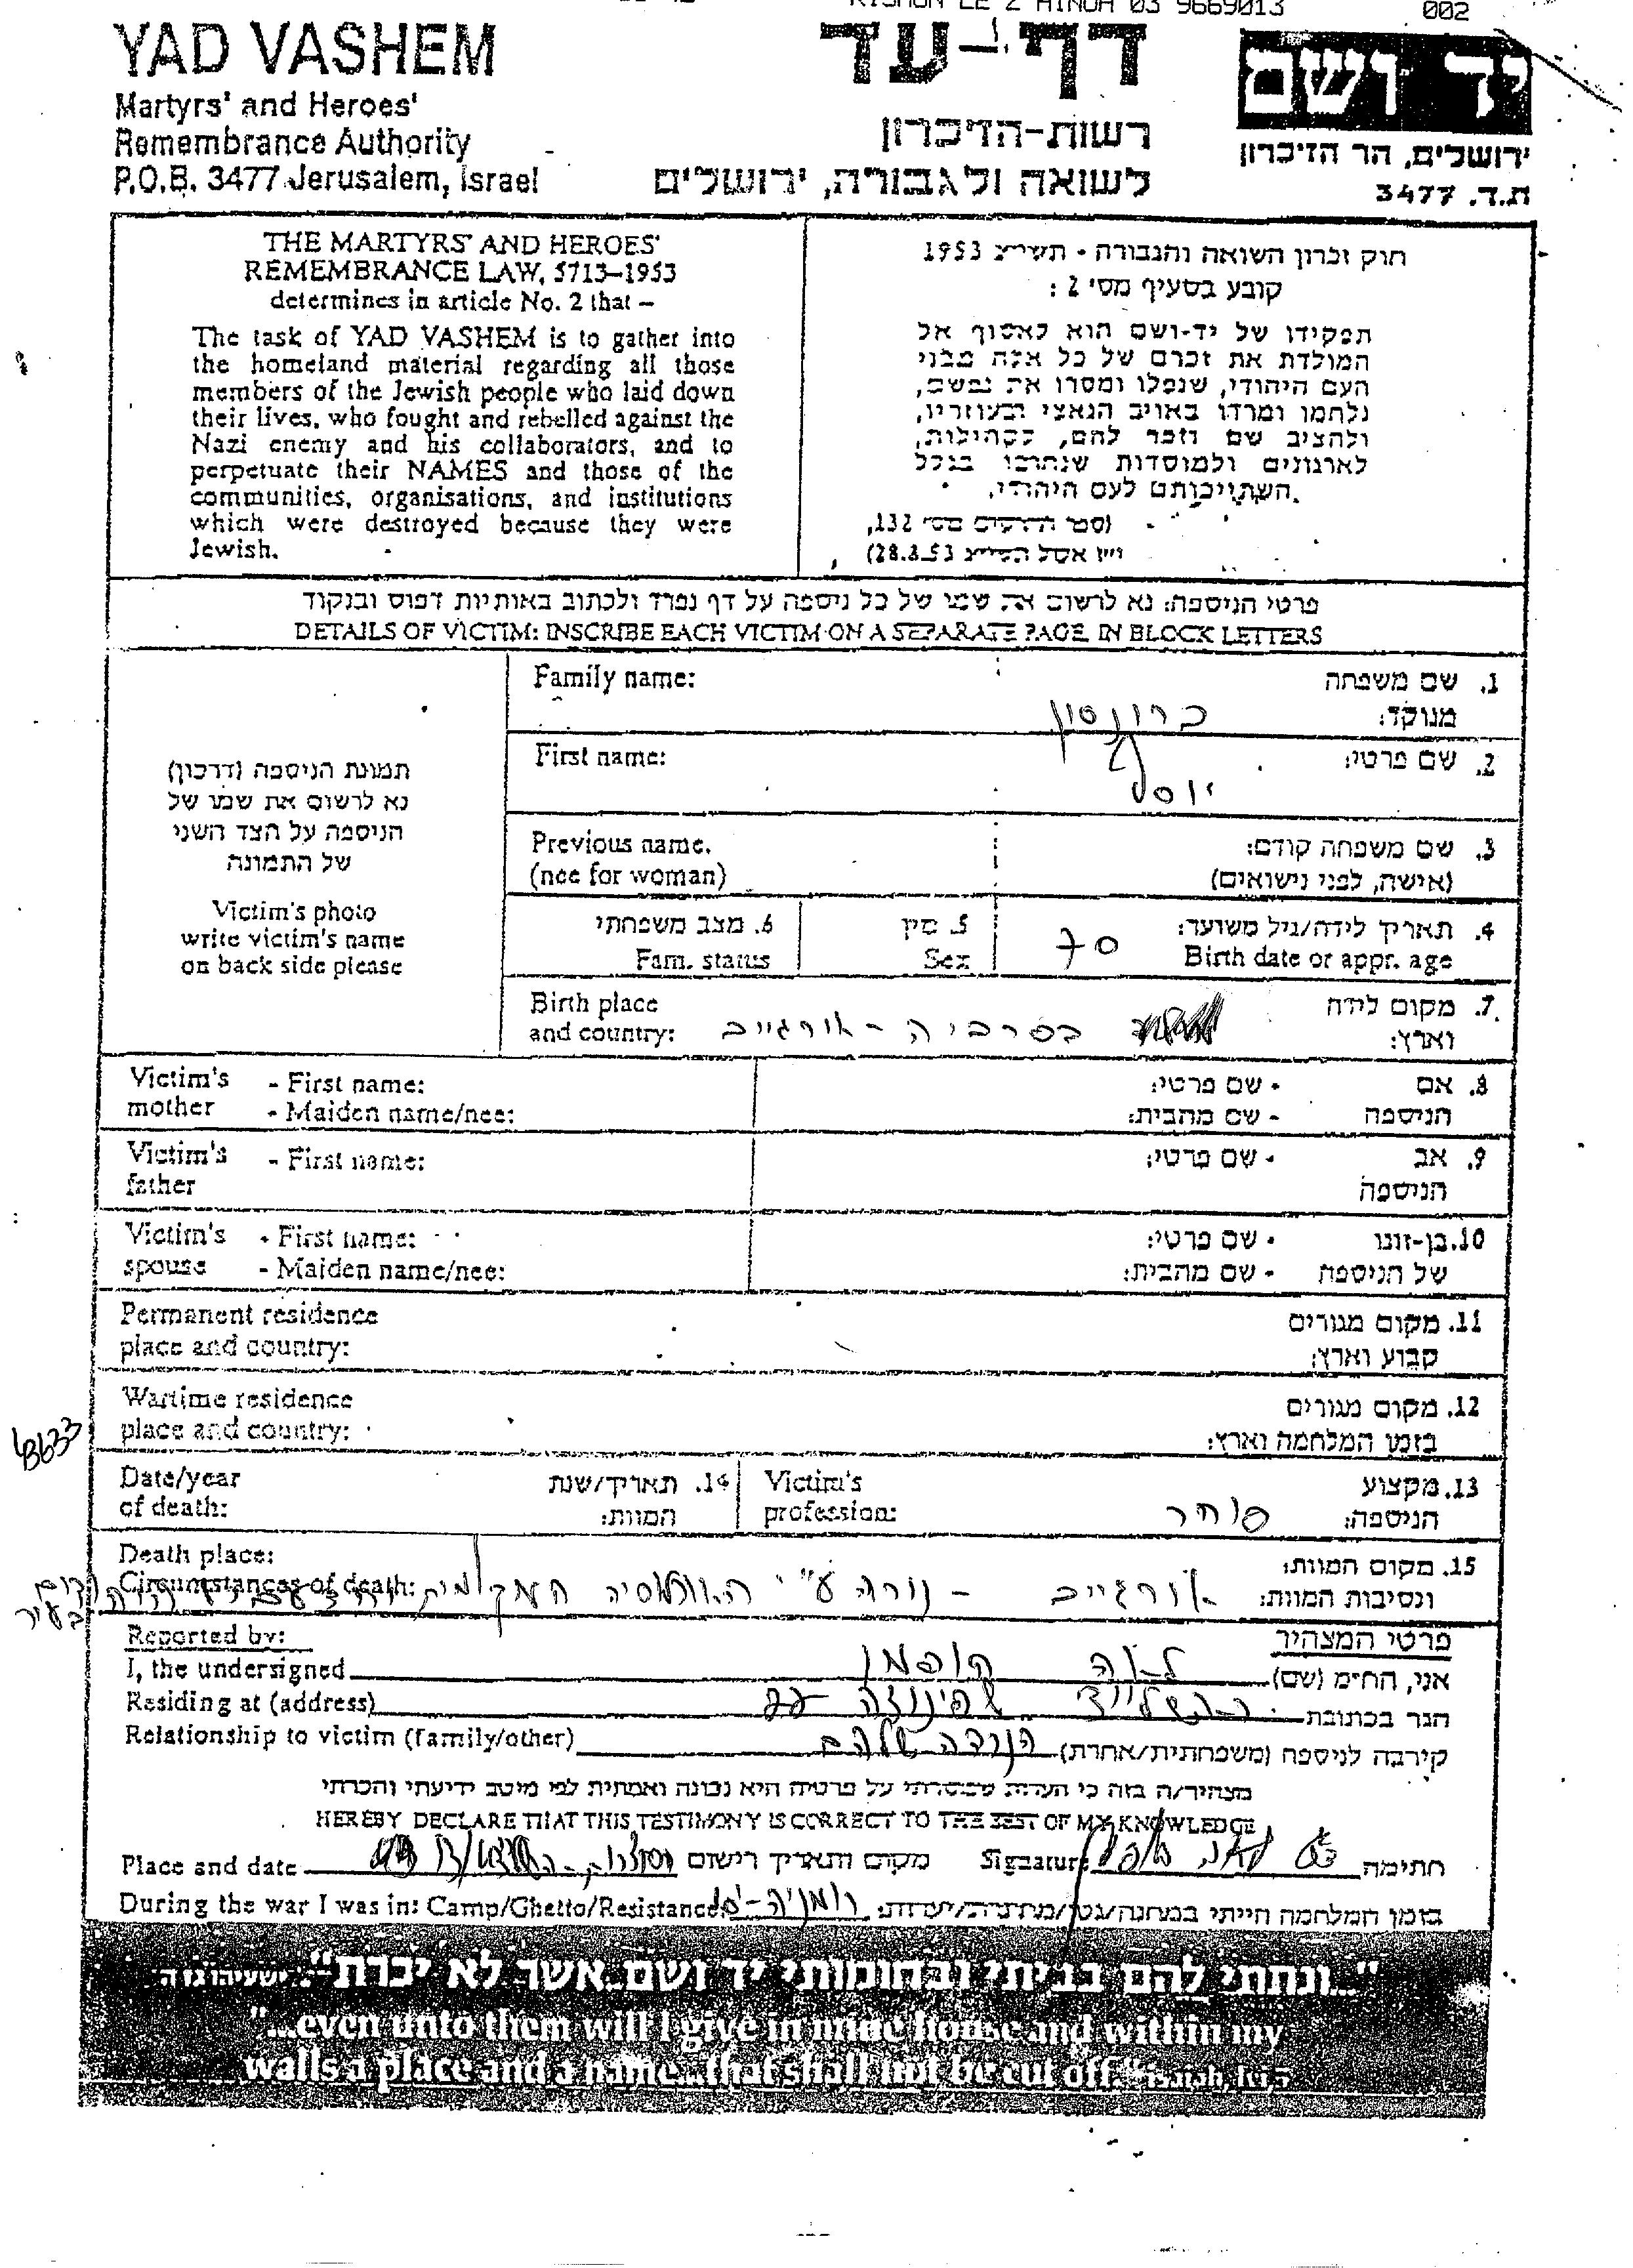 RISHON LE Z MINUH 03 9669013 002
YAD VASHEM
Martyrs' and Heroes'
Remembrance Authority
P.O.B. 3477 Jerusalem, Israel
דף-עד
רשות-הזיכרון
לשואה ולגבורה, ירושלים
יד ושם
ירושלים, הר הזיכרון
ת.ד. 3477
THE MARTYRS' AND HEROES'
REMEMBRANCE LAW, 5713–1953
determines in article No. 2 that –
The task of YAD VASHEM is to gather into
the homeland material regarding all those
members of the Jewish people who laid down
their lives, who fought and rebelled against the
Nazi enemy and his collaborators, and to
perpetuate their NAMES and those of the
communities, organisations, and institutions
which were destroyed because they were
Jewish.
חוק זכרון השואה והגבורה - תשי״ג 1953
קובע בסעיף מס' 2 :
תפקידו של יד-ושם הוא לאסוף אל
המולדת את זכרם של כל אלה מבני
העם היהודי, שנפלו ומסרו את נפשם,
נלחמו ומרדו באויב הנאצי ובעוזריו,
ולהציב שם וזכר להם, לקהילות,
לארגונים ולמוסדות שנחרבו בגלל
השתייכותם לעם היהודי.
(ספר החוקים מס' 132,
י״ז אלול תשי״ג 28.8.53)
פרטי הניספה: נא לרשום את שמו של כל ניספה על דף נפרד ולכתוב באותיות דפוס ובנקוד
DETAILS OF VICTIM: INSCRIBE EACH VICTIM ON A SEPARATE PAGE IN BLOCK LETTERS
תמונת הניספה (דרכון)
נא לרשום את שמו של
הניספה על הצד השני
של התמונה
Victim's photo
write victim's name
on back side please
Family name: 1. שם משפחה
מנוקד: ברונסון
First name: 2. שם פרטי:
יוסף
Previous name. 3. שם משפחה קודם:
(nee for woman) (אישה, לפני נישואים)
6. מצב משפחתי 5. מין 4. תאריך לידה/גיל משוער: 70
Fam. status Sex Birth date or appr. age
Birth place 7. מקום לידה
and country: וארץ: בסרביה - אורגייב
Victim's - First name: 8. אם - שם פרטי:
mother - Maiden name/nee: הניספה - שם מהבית:
Victim's - First name: 9. אב - שם פרטי:
father הניספה
Victim's - First name: 10. בן-זוגו - שם פרטי:
spouse - Maiden name/nee: של הניספה - שם מהבית:
Permanent residence 11. מקום מגורים
place and country: קבוע וארץ:
Wartime residence 12. מקום מגורים
place and country: בזמן המלחמה וארץ:
48633
Date/year 14. תאריך/שנת Victim's 13. מקצוע
of death: המוות: profession: הניספה: סוחר
Death place: 15. מקום המוות:
Circumstances of death: ונסיבות המוות: אורגייב - נורה ע"י האוכלוסיה המקומית
בעיר
Reported by: פרטי המצהיר
I, the undersigned אני, החי״מ (שם) לאה קופמן
Residing at (address) הגר בכתובת שפינוזה
Relationship to victim (family/other) קירבה לניספה (משפחתית/אחרת) הנכדה שלהם
מצהיר/ה בזה כי העדות שמסרתי על פרטיה היא נכונה ואמתית לפי מיטב ידיעתי והכרתי
HEREBY DECLARE THAT THIS TESTIMONY IS CORRECT TO THE BEST OF MY KNOWLEDGE
Place and date מקום ותאריך רישום Signature חתימה
During the war I was in: Camp/Ghetto/Resistance: בזמן המלחמה הייתי במחנה/גטו/מחתרת/יערות: רומניה
"...ונתתי להם בביתי ובחומותי יד ושם...אשר לא יכרת" ישעיהו נו ה
"...even unto them will I give in mine house and within my
walls a place and a name...that shall not be cut off." Isaiah, lvi, 5